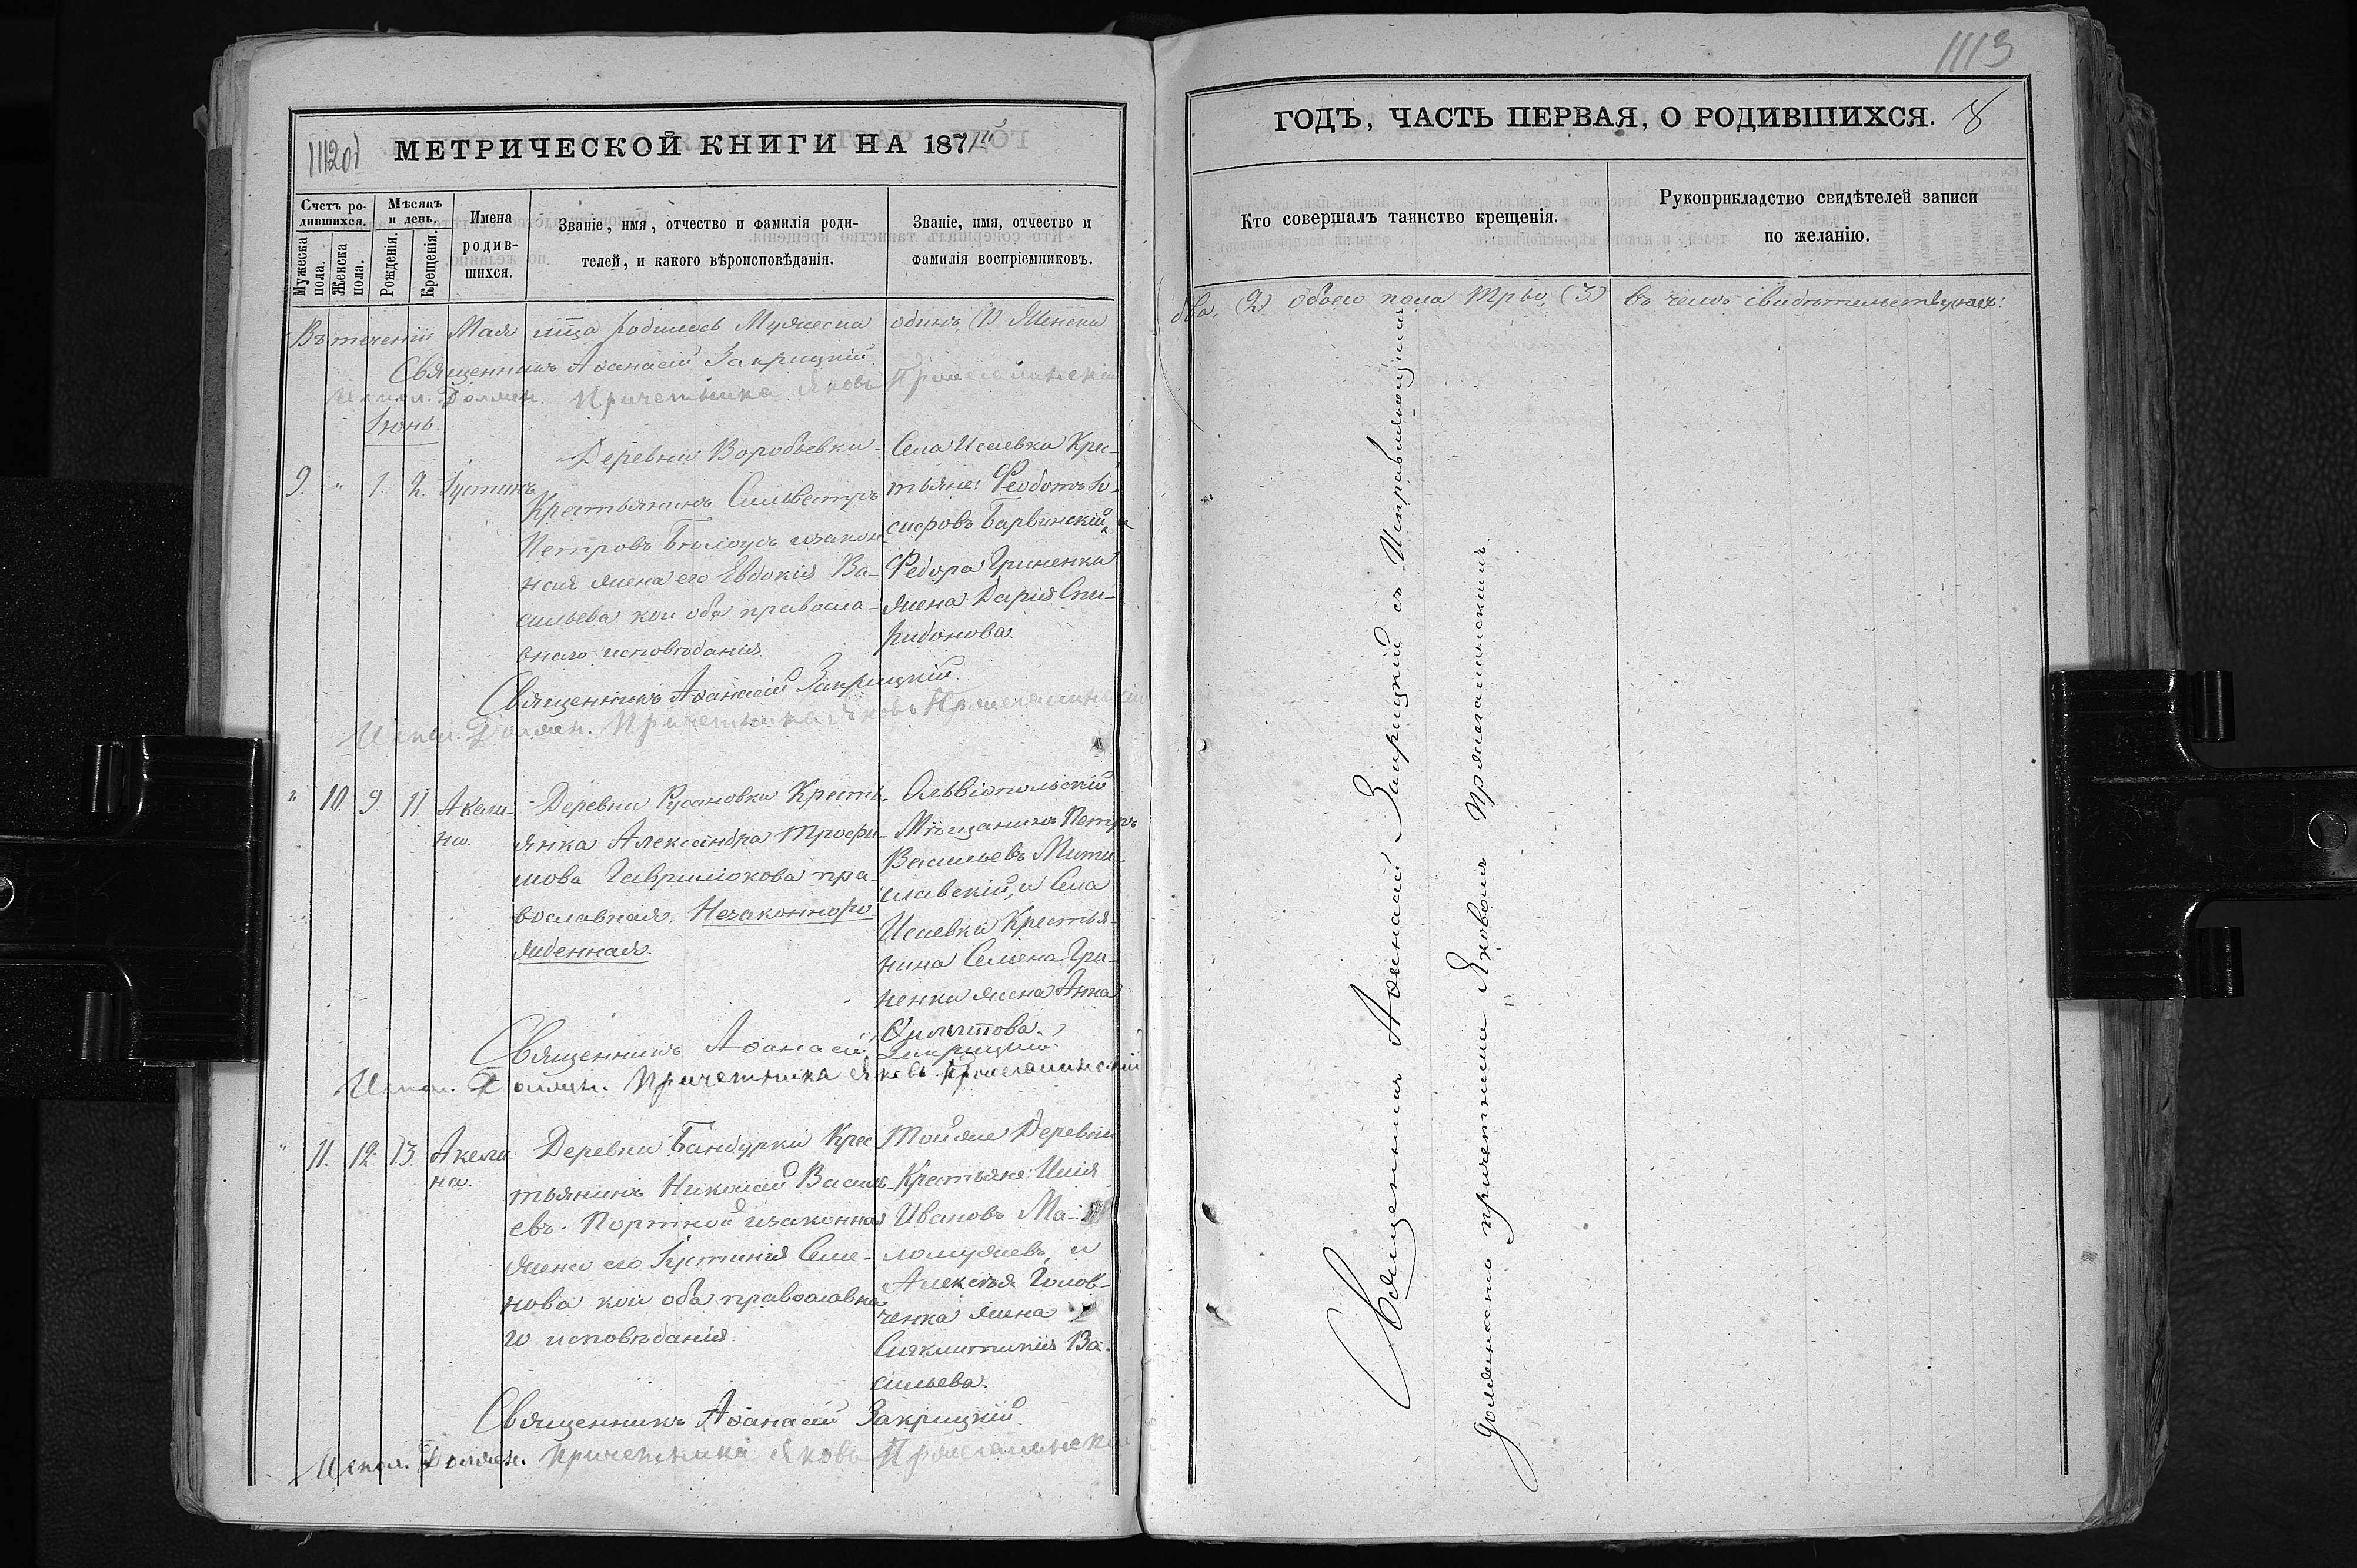 1112об
МЕТРИЧЕСКОЙ КНИГИ НА 187
Счетъ ро-
дившихся.
Мужеска
пола.
Женска
пола.
Мѣсяцъ
и день.
Рожденія.
Крещенія.
Имена
родив-
шихся.
Званіе, имя, отчество и фамилія роди-
телей, и какого вѣроисповѣданія.
Званіе, имя, отчество и
фамилія воспріемниковъ.
Въ теченіи Мая мѣсяца родилось Мужеска одинъ (1) Женска
Священникъ Аѳанасій Закрицкій
Испол. Должн. Причетника Яковъ
Іюнь.
9. " 1. 2. Іустинъ
Деревни Воробьевки
Крестьянинъ Сильвестръ
Петровъ Бѣлоусъ и закон
ная жена его Евдокія Ва-
сильева кои оба правосла-
внаго исповѣданія
Села Исаевки Крес-
тьяне: Ѳеодотъ Іо-
сифовъ Барвинскій, и
Федора Гриненка
жена Дарія Спи-
ридонова.
Священникъ Аѳанасій Закрицкій.
Испол. Должн. Причетника Яковъ
" 10. 9. 11. Акели-
на.
Деревни Русановки Кресть-
янка Александра Трофи-
мова Гаврилюкова пра-
вославная. Незаконноро-
жденная.
Ольвіопольскій
Мѣщанинъ Петръ
Васильевъ
славскій, и Села
Исаевки Крестья-
нина Семена Гри-
ненки жена Анна
Филиппова.
Священникъ Аѳанасій Закрицкій
Испол. Должн. Причетника Яковъ
" 11. 12. 13. Акели-
на.
Деревни Бандурки Крес
тьянинъ Николай Василь-
евъ Портной и законная
жена его Іустинія Семе-
нова кои оба православна
го исповѣданія
Той же Деревни
Крестьяне Илія
Ивановъ Ма-
ломужевъ, и
Алексѣя Голов-
ченка жена
Синклитикія Ва-
сильева.
Священникъ Аѳанасій Закрицкій
Испол. Должн. Причетника Яковъ
1113
ГОДЪ, ЧАСТЬ ПЕРВАЯ, О РОДИВШИХСЯ. 8
Кто совершалъ таинство крещенія.
Рукоприкладство свидѣтелей записи
по желанію.
два, (2) обоего пола Трое, (3) въ чемъ свидѣтельствуемъ:
Священникъ Аѳанасій Закрицкій съ Исправляющимъ
должность причетника Яковомъ